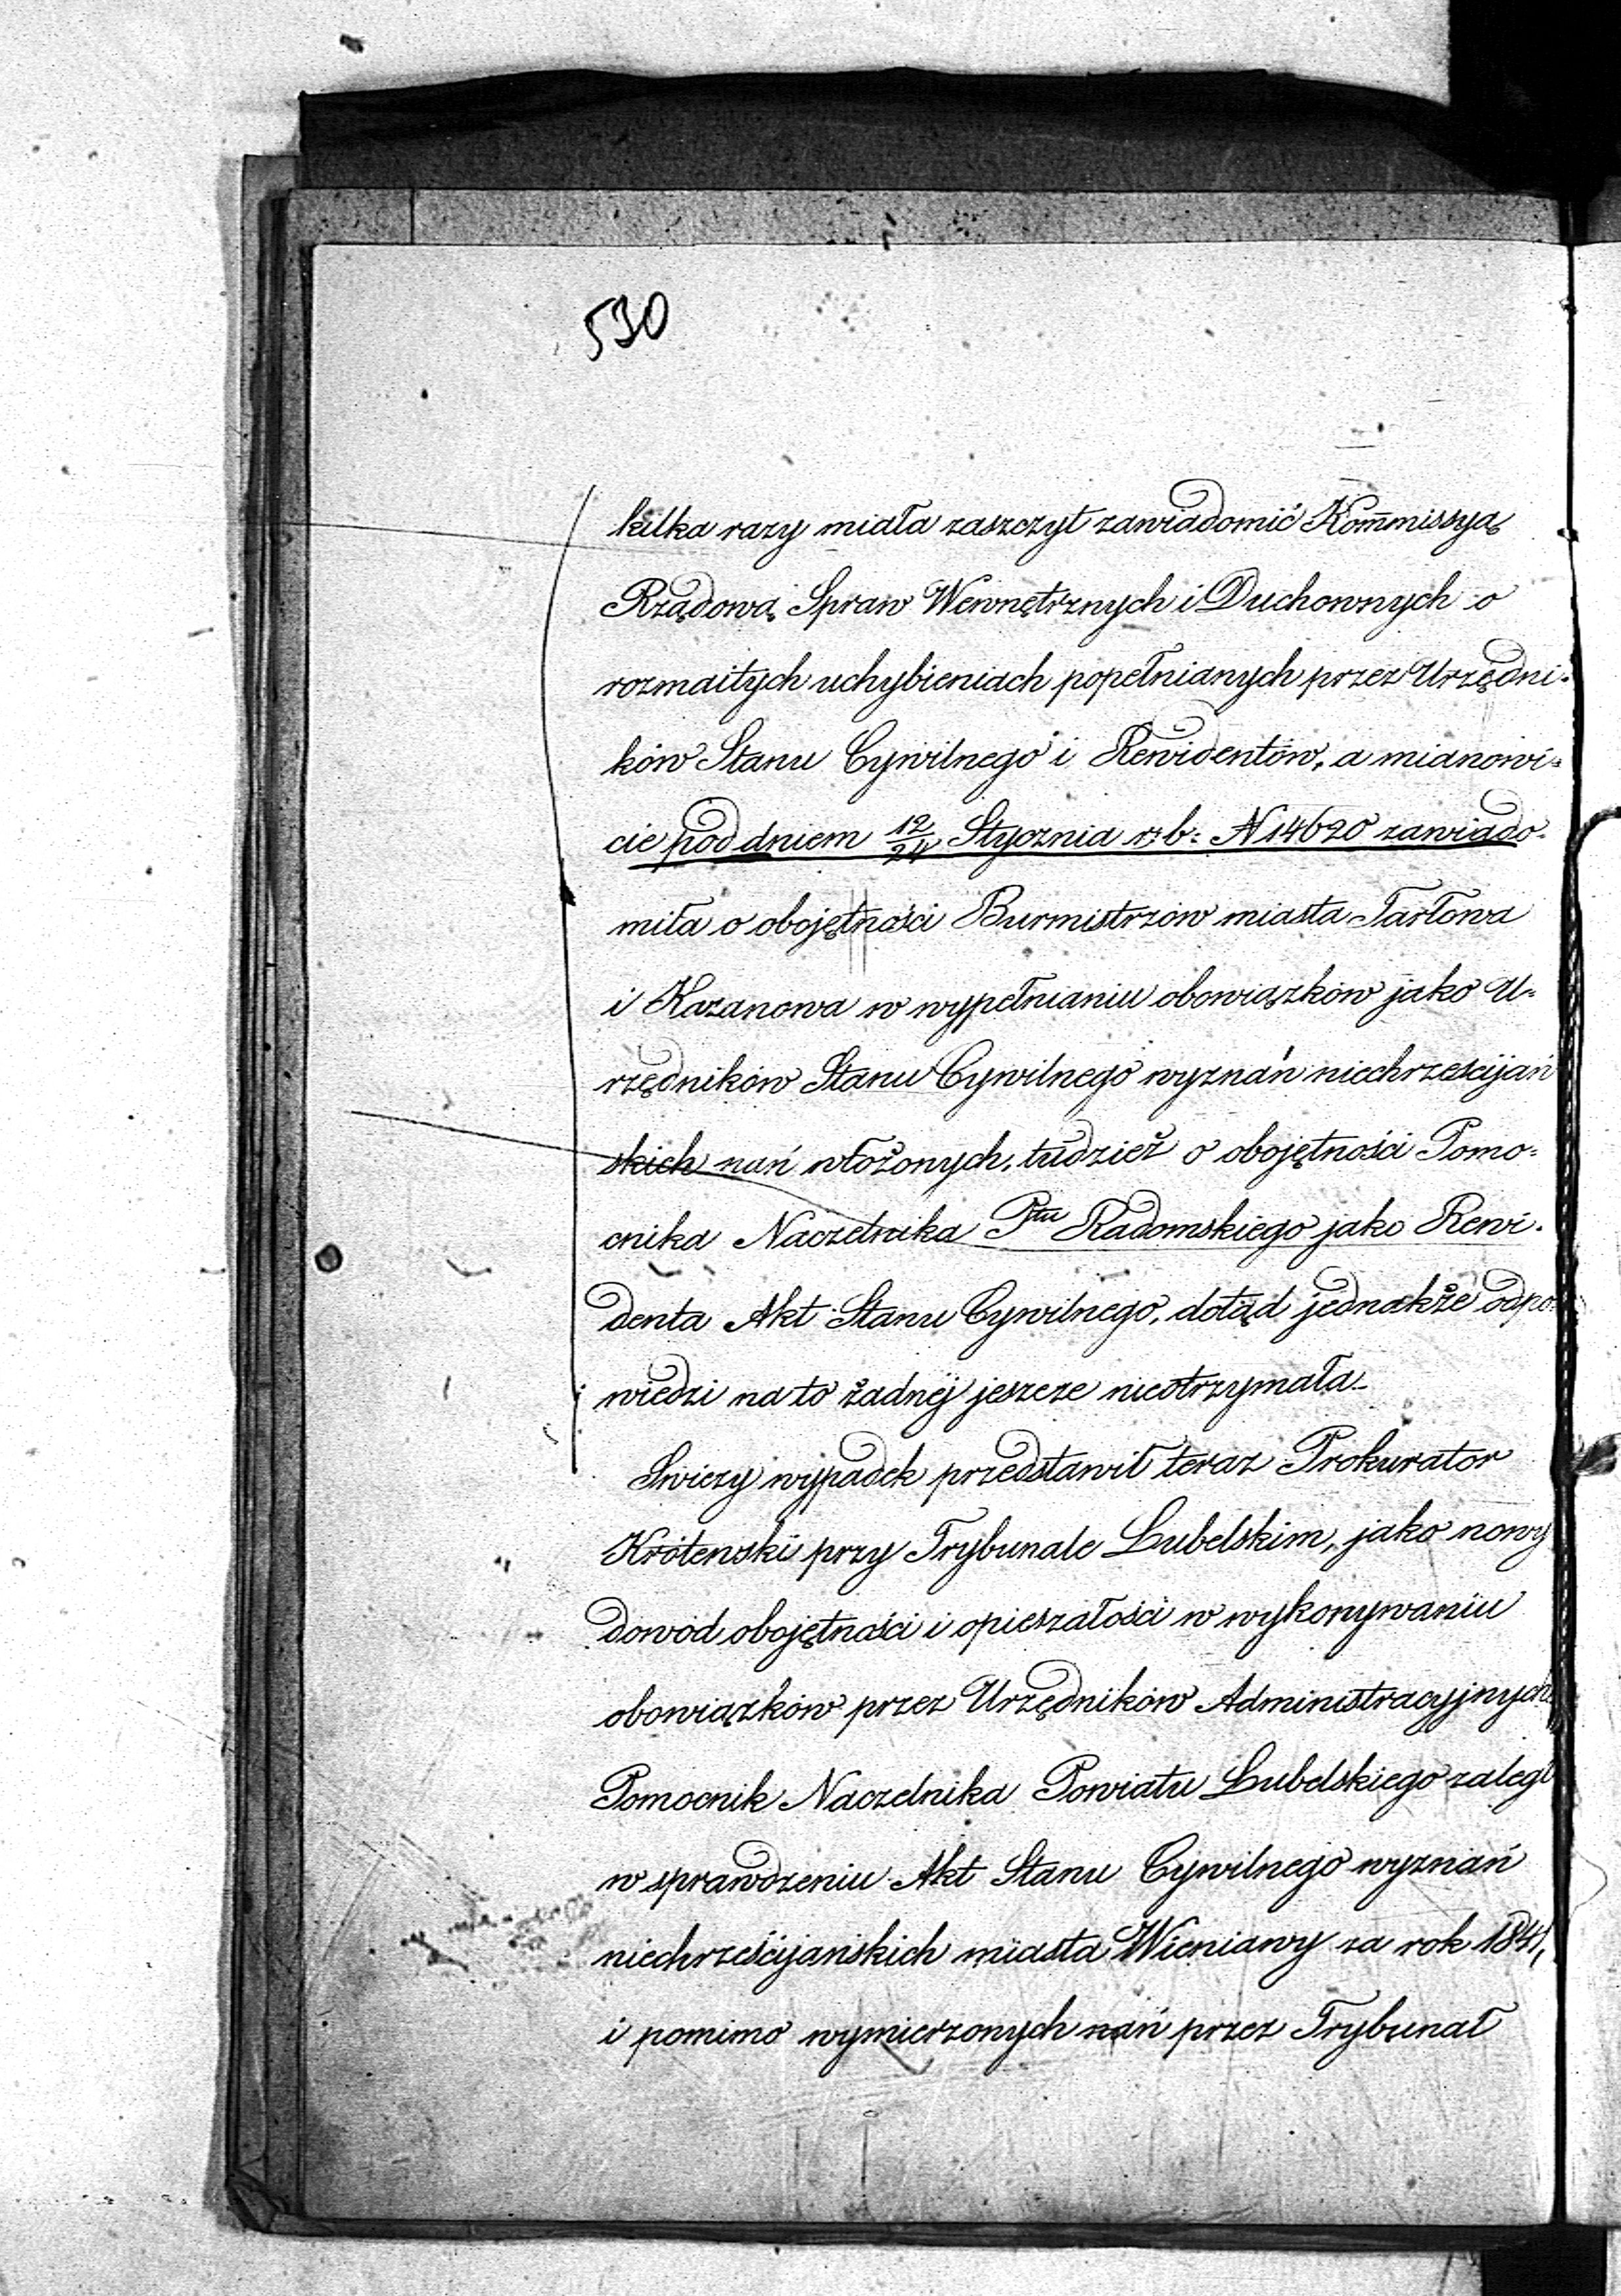 530
kilka razy miała zaszczyt zawiadomić Kom̄missyą
Rządową Spraw Wewnętrznych i Duchownych o
rozmaitych uchybieniach popełnianych przez Urzędni-
ków Stanu Cywilnego i Rewidentów, a mianowi-
cie pod dniem 12/24 Stycznia r: b: N 14620 zawiado-
miła o obojętności Burmistrzów miasta Tarłowa
i Kazanowa w wypełnianiu obowiązków jako U-
rzędników Stanu Cywilnego wyznań niechrześcijań
skich nań włożonych, tudzież o obojętności Pomo-
cnika Naczelnika Ptu Radomskiego jako Rewi-
denta Akt Stanu Cywilnego, dotąd jednakże odpo-
wiedzi na to żadnéj jeszcze nieotrzymała_
Swieży wypadek przedstawił teraz Prokurator
Królewski przy Trybunale Lubelskim, jako nowy
dowód obojętności i opieszałości w wykonywaniu
obowiązków przez Urzędników Administracyjnych
Pomocnik Naczelnika Powiatu Lubelskiego zaległ
w sprawdzeniu Akt Stanu Cywilnego wyznań
niechrześcijańskich miasta Wieniawy za rok 1841,
i pomimo wymierzonych nań przez Trybunał